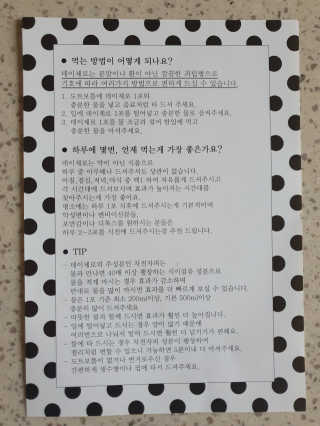 ● 먹는 방법이 어떻게 되나요?
데이제로는 분말이나 환이 아닌 깔끔한 과립형으로
기호에 따라 여러가지 방법으로 편하게 드실 수 있습니다.
1. 도트보틀에 데이제로 1포와
충분한 물을 넣고 음료처럼 타 드셔 주세요.
2. 입에 데이제로 1포를 털어넣고 충분한 물로 삼켜주세요.
3. 데이제로 1포를 물 조금과 섞어 한입에 먹고
충분한 물을 마셔주세요.
● 하루에 몇번, 언제 먹는게 가장 좋은가요?
데이제로는 약이 아닌 식품으로
하루 중 아무때나 드셔주셔도 상관이 없습니다.
아침,점심,저녁,야식 중 택1 하여 자유롭게 드셔주시고
각 시간대에 드셔보시며 효과가 높아지는 시간대를
찾아주시는게 가장 좋아요.
평소에는 하루 1포 식후에 드셔주시는게 기본적이며
악성변비나 변비이신분들,
포만감이나 디톡스를 원하시는 분들은
하루 2~3포를 식전에 드셔주시는걸 추천 드립니다.
● TIP
- 데이제로의 주성분인 차전자피는
물과 만나면 40배 이상 팽창하는 식이섬유 성분으로
물을 적게 마시는 경우 효과가 감소하며
반대로 물을 많이 마시면 효과를 더 빠르게 보실 수 있습니다.
- 물은 1포 기준 최소 200ml이상, 기본 500ml이상
충분히 많이 드셔주세요
- 따뜻한 물과 함께 드시면 효과가 훨씬 더 높아집니다.
- 입에 털어넣고 드시는 경우 양이 많기 때문에
여러번으로 나눠서 털어 드시면 훨씬 더 넘기기가 편해요.
- 물에 타 드시는 경우 차전자피 성분이 팽창하여
젤리처럼 변할 수 있으니 가능하면 5분이내 다 마셔주세요.
- 도트보틀이 없거나 번거로우신 경우
간편하게 생수병이나 컵에 타서 드셔주세요.